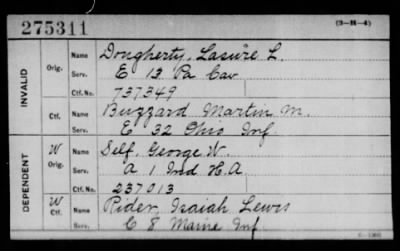 275311
(3-H-4)
INVALID
Orig.
Name Dougherty, Lasure L.
Serv. E 13 Pa Cav
Ctf. No. 737349
Ctf.
Name Buzzard Martin M.
Serv. E 32 Ohio Inf
DEPENDENT
W Orig.
Name Self, George W.
Serv. A 1 Ind H.A
Ctf. No. 237013
W Ctf.
Name Rider, Isaiah Lewis
Serv. C 8 Maine Inf